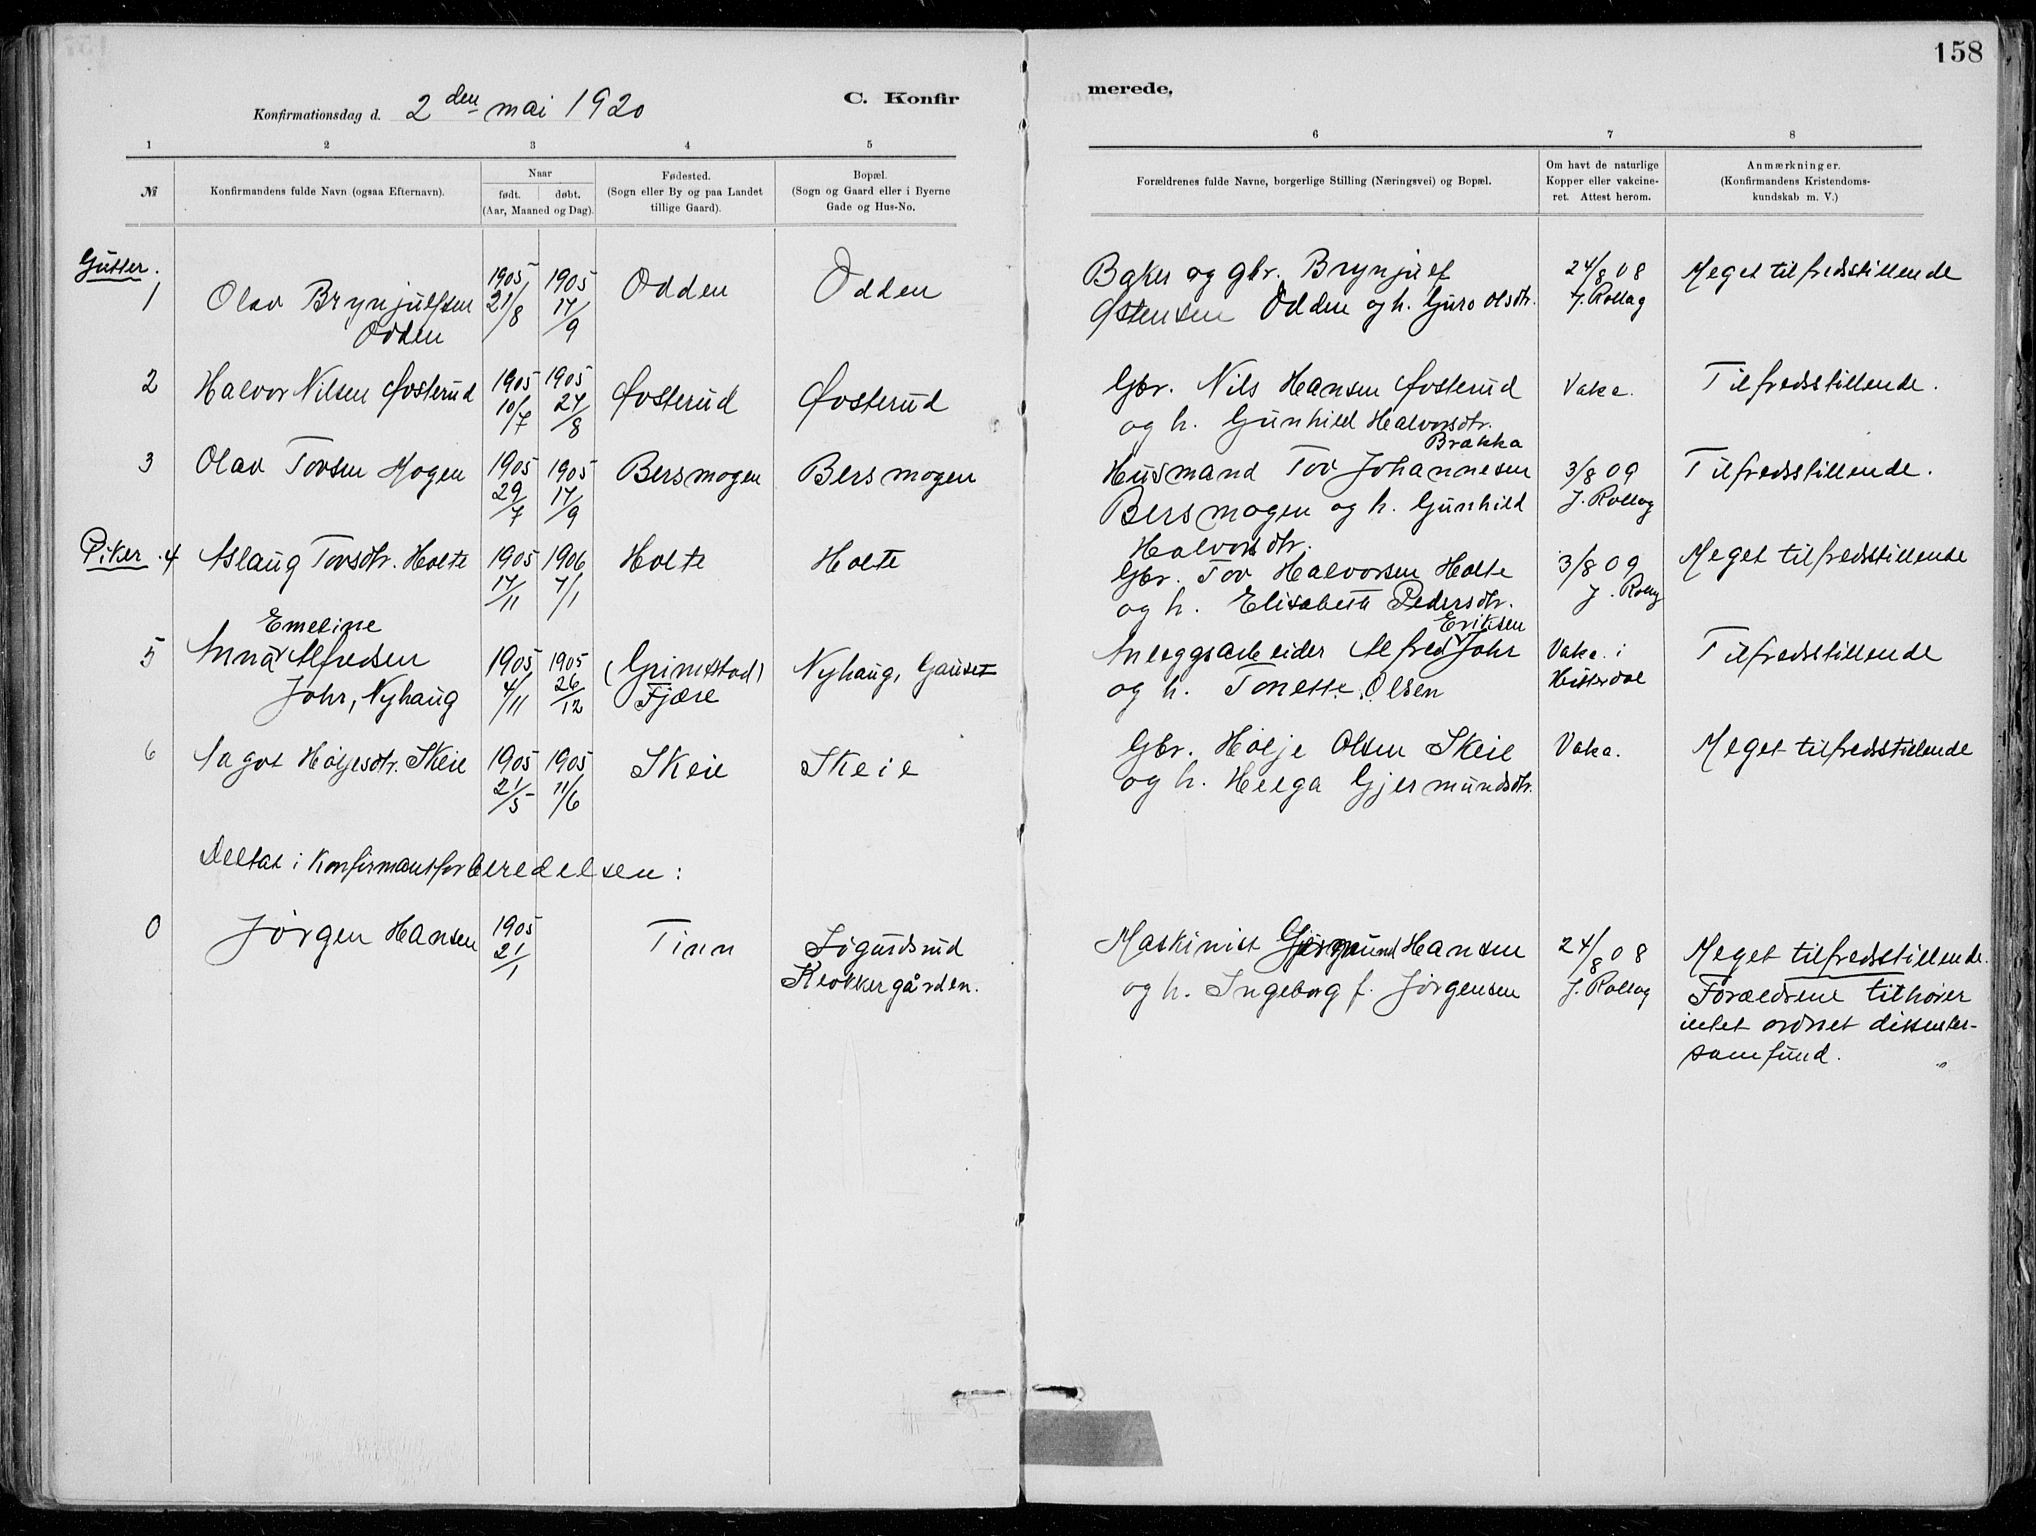 158
C. Konfirmerede.
Konfirmationsdag d. 2den mai 1920
1 2 3 4 5 6 7 8
№
Konfirmandens fulde Navn (ogsaa Efternavn).
Naar
født. døbt.
(Aar, Maaned og Dag).
Fødested.
(Sogn eller By og paa Landet
tillige Gaard).
Bopæl.
(Sogn og Gaard eller i Byerne
Gade og Hus-No.
Forældrenes fulde Navne, borgerlige Stilling (Næringsvei) og Bopæl.
Om havt de naturlige
Kopper eller vakcine-
ret. Attest herom.
Anmærkninger.
(Konfirmandens Kristendoms-
kundskab m. V.)
Gutter.
1 Olav Brynjulfsen
Odden
1905
21/8
1905
17/9
Odden
Odden
Baker og gbr. Brynjulf
Østensen Odden og h. Guro Olsdtr.
24/8 08
J. Rollag
Meget tilfredsstillende
2 Halvor Nilsen Øvsterud
1905
10/7
1905
27/8
Øvsterud
Øvsterud
Gbr. Nils Hansen Øvsterud
og h. Gunhild Halvorsdtr.
Brakka
Vakc.
Tilfredsstillende.
3 Olav Tovsen Mogen
1905
29/7
1905
17/9
Bersmogen
Bersmogen
Husmand Tov Johannesen
Bersmogen og h. Gunhild
Halvorsdtr.
3/8 09
J. Rollag
Tilfredsstillende.
Piker. 4 Aslaug Tovsdtr. Holte
1905
17/11
1906
7/1
Holte
Holte
Gbr. Tov Halvorsen Holte
og h. Elisabeth Pedersdtr.
3/8 09
J. Rollag
Meget tilfredsstillende
Emeline
5 Anna Alfredsen
Johr, Nyhaug
1905
4/11
1905
26/12
(Grimstad)
Fjære
Nyhaug, Gauset
Eriksen
Anleggsarbeider Alfred Johr
og h. Tonette Olsen
Vakc. i
Hitterdal
Tilfredsstillende
6 Aagot Høljesdtr. Skeie
1905
21/5
1905
11/6
Skeie
Skeie
Gbr. Hølje Olsen Skeie
og h. Helga Gjermundsdtr.
Vakc.
Meget tilfredsstillende
Deltat i Konfirmantforberedelsen:
0 Jørgen Hansen
1905
21/1
Tinn
Sigurdsrud
Klokkergården.
Maskinist Hansen
og h. Ingeborg f. Jørgensen
24/8 08
J. Rollag
Meget tilfredsstillende.
Forældrene tilhører
intet ordnet dissenter-
samfund.